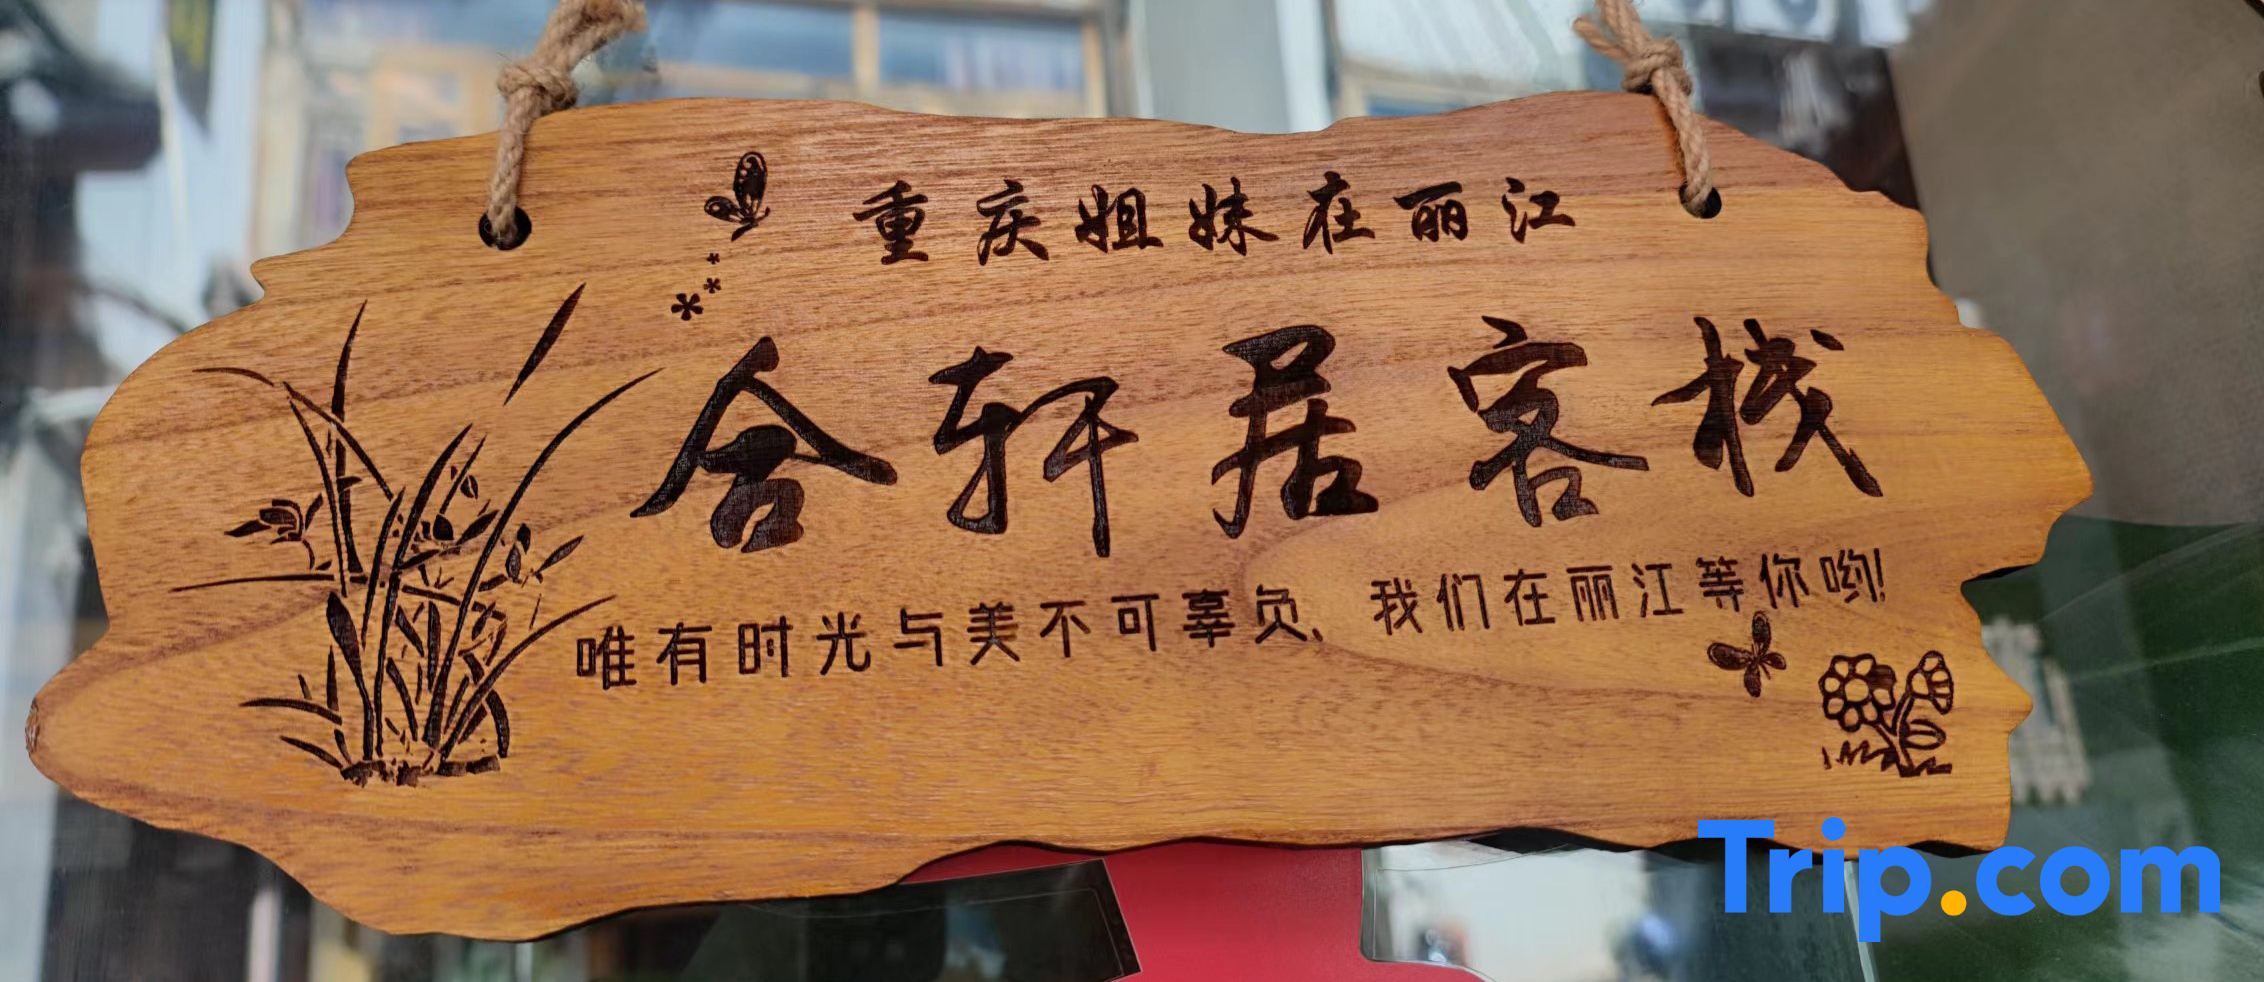 重庆姐妹在丽江
合轩居客栈
唯有时光与美不可辜负、我们在丽江等你哟!
Trip.com